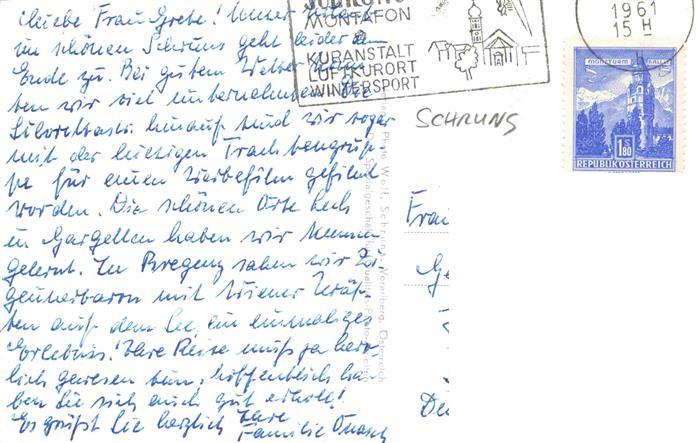 Liebe Frau Grete! Unser Urlaub
im schönen Schruns geht leider dem
Ende zu. Bei gutem Wetter
ten wir viel unternehmen. Die
hinauf sind wir sogar
mit der hiesigen Trachtengrup-
pe für einen Werbefilm gefilmt
worden. Die schönen Orte Lech
in Gargellen haben wir kennen
gelernt. In Bregenz sahen wir Zi-
geunerbaron mit Wiener Kräf-
ten auf dem See, ein einmaliges
Erlebnis. Ihre Reise muß ja herr-
lich gewesen sein, hoffentlich ha-
ben Sie sich auch gut erholt!
Es grüßt Sie herzlich Ihre
Familie
SCHRUNS
MONTAFON
KURANSTALT
LUFTKURORT
WINTERSPORT
1961
15 H
SCHRUNS
MÜNZTURM HALL
1 S 80
REPUBLIK ÖSTERREICH
Photo Wolf, Schruns, Vorarlberg, Österreich
Frau
Ge